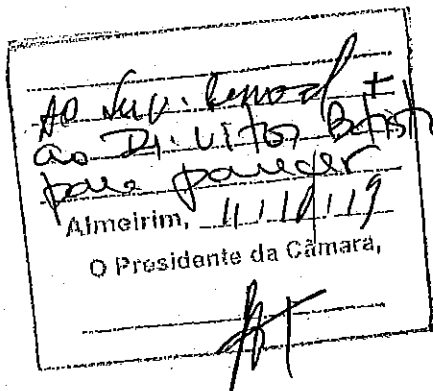 ao Dr. Vitor Batista
para parecer
Almeirim, 11/10/19
O Presidente da Câmara,